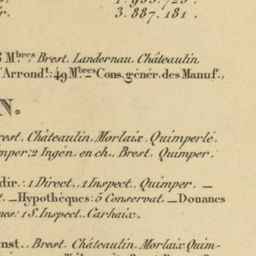 3.887.181.
M.bres Brest. Landernau. Châteaulin
Arrond.t: 49 M.bres _ Cons. génér. des Manuf.,
N.
rest. Châteaulin. Morlaix. Quimperlé.
mper: 2 Ingén. en ch.. Brest. Quimper.
dir.: 1 Direct.. 1 Inspect.. Quimper. _
. _ Hypothèques: 5 Conservat. _ Douanes
nes: 1 S. Inspect.. Carhaix.
nst.. Brest. Châteaulin. Morlaix Quim-